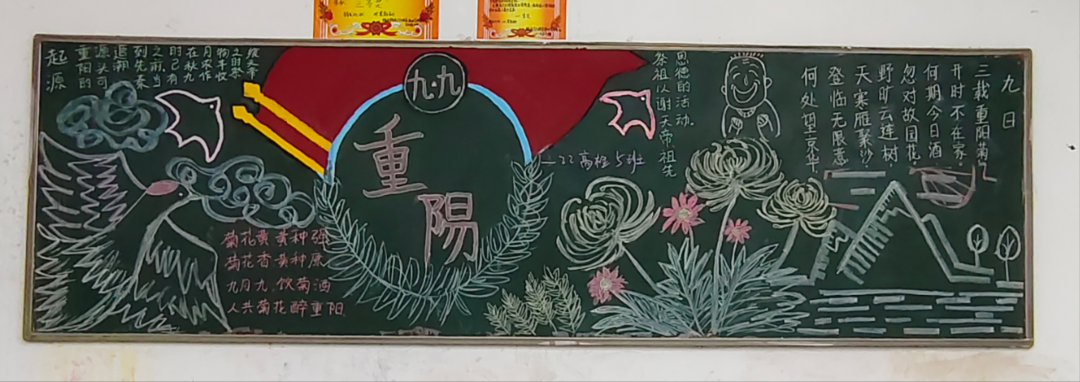 起源
重阳的
源头可
追溯
到先秦
之前,当
时已有
在秋九
月农作
物丰收
之时祭
祭祖以谢天帝祖先
恩德的活动.
九.九
重阳
菊花黄 黄种强
菊花香 黄种康
九月九 饮菊酒
人共菊花醉重阳
九日
三载重阳菊
开时不在家。
何期今日酒
忽对故园花。
野旷云连树
天寒雁聚沙。
登临无限意
何处望京华.